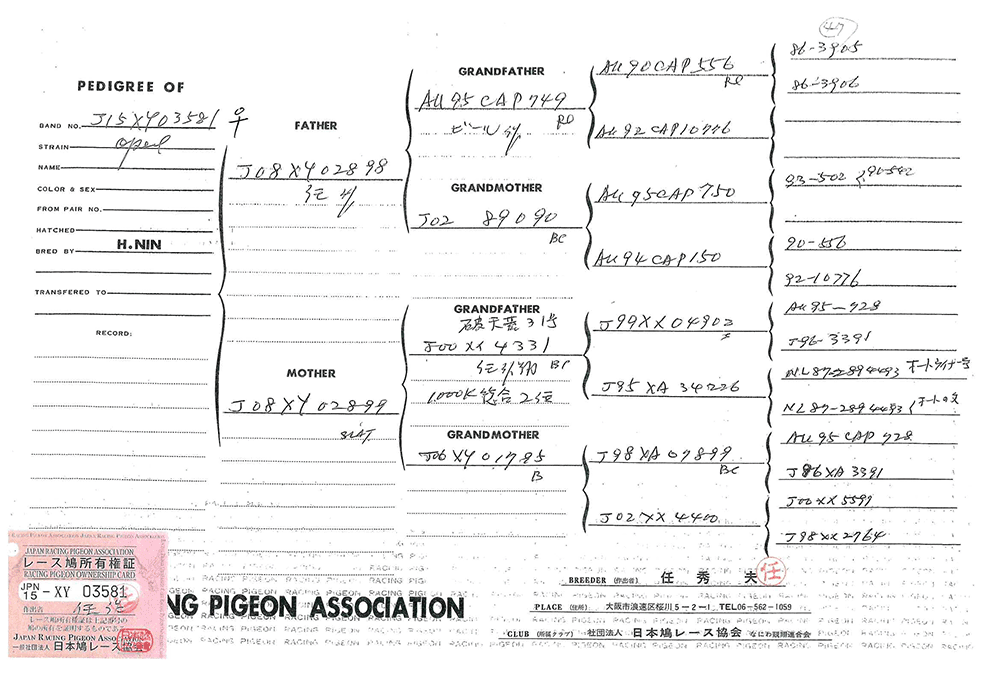 47
PEDIGREE OF
BAND NO. J15XY03581 ♀
STRAIN
NAME
COLOR & SEX
FROM PAIR NO.
HATCHED
BRED BY H.NIN
TRANSFERED TO
RECORD:
FATHER
J08XY02898
MOTHER
J08XY02899
GRANDFATHER
AU95CAP749
RD
GRANDMOTHER
J02 89090
BC
GRANDFATHER
J00XX4331
BC
1,000K総合2位
GRANDMOTHER
J06XY01785
B
AU90CAP556
RC
AU92CAP10776
AU95CAP750
AU94CAP150
J99XX04902
S
J95XA34226
J98XA07899
BC
J02XX4400
86-3905
86-3906
93-502 90-542
90-556
92-10776
AU95-728
J96-3391
NL87-2894493 オートライナー号
NL87-2894493 オートの父
AU95CAP728
J86XA3391
J00XX5591
J98XX2764
JAPAN RACING PIGEON ASSOCIATION
レース鳩所有権証
RACING PIGEON OWNERSHIP CARD
JPN 15-XY 03581
作出者
レース鳩所有権証は上記番号の
鳩の所有を証明するものである
JAPAN RACING PIGEON ASSO
一般社団法人 日本鳩レース協会
NG PIGEON ASSOCIATION
BREEDER (作出者) 任 秀 夫 任
PLACE (住所) 大阪市浪速区桜川5-2-1 TEL06-562-1059
CLUB (所属クラブ) 社団法人 日本鳩レース協会 なにわ競翔連合会